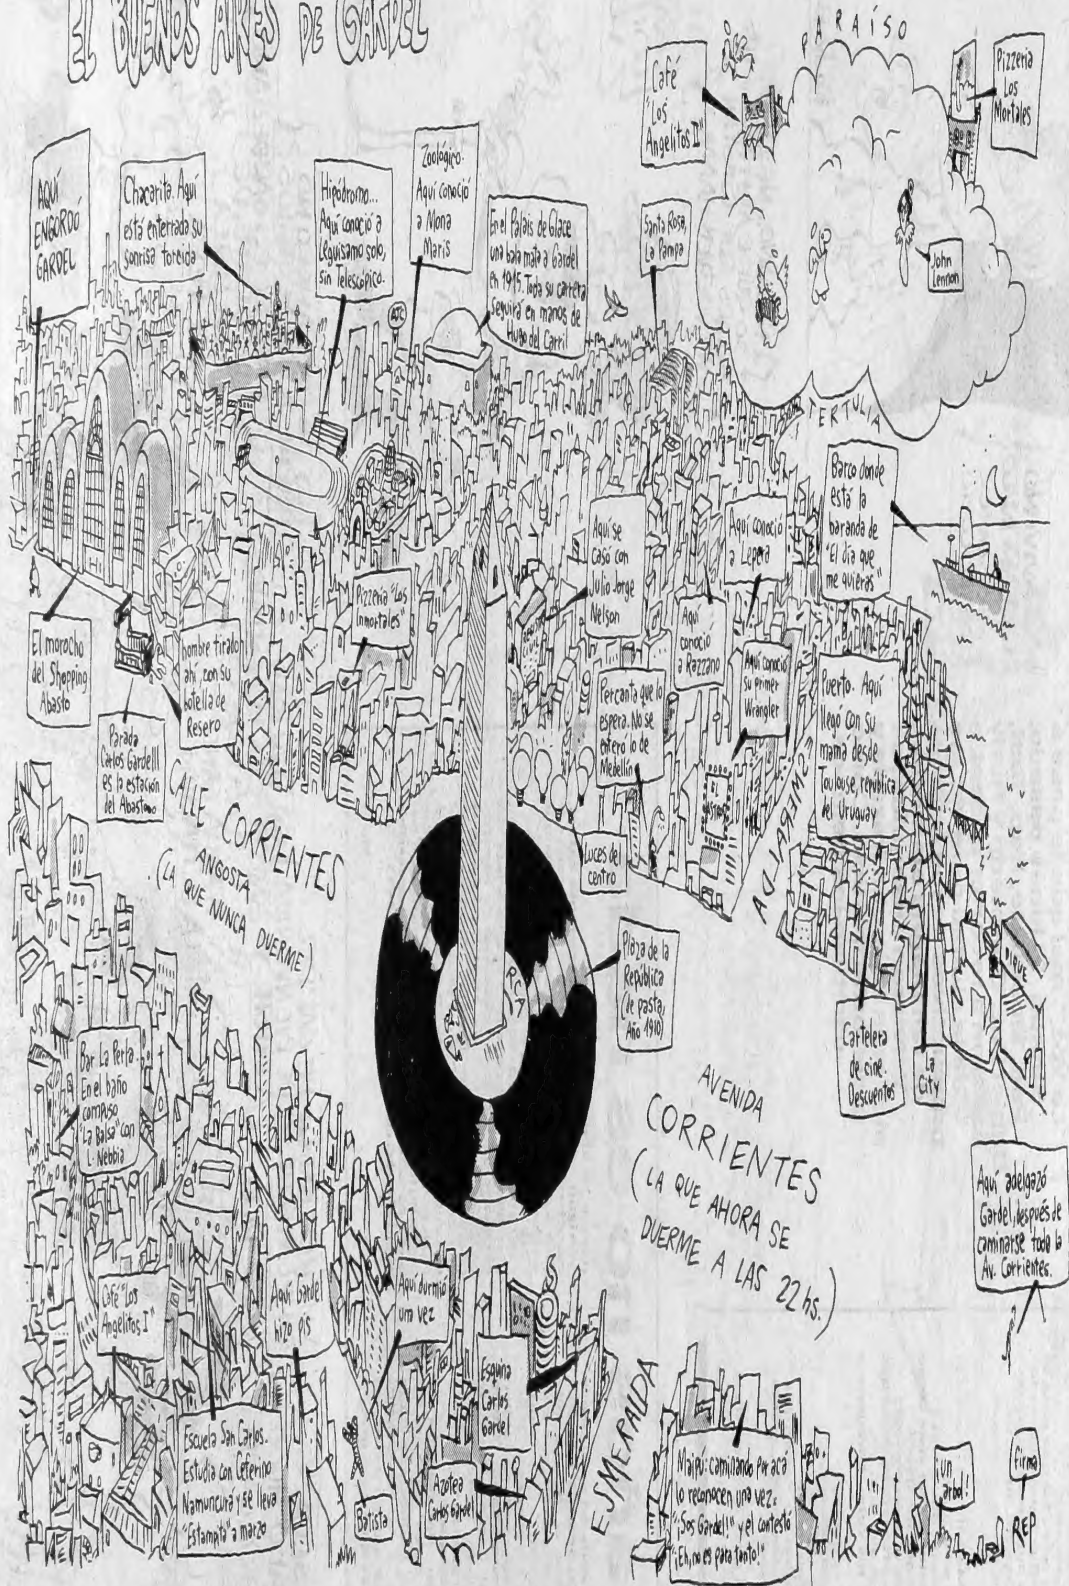 EL BUENOS AIRES DE GARDEL
PARAÍSO
Café
"Los
Angelitos II"
Pizzería
Los
Mortales
AQUÍ
ENGORDÓ
GARDEL
Chacarita. Aquí
está enterrada su
sonrisa torcida
Hipódromo...
Aquí conoció a
Leguisamo solo,
sin Telescópico.
Zoológico.
Aquí conoció
a Mona
Maris
En el Palais de Glace
una bala mata a Gardel
en 1915. Toda su carrera
seguirá en manos de
Hugo del Carril
Santa Rosa,
La Pampa
John
Lennon
ATC
TERTULIA
Barco donde
está la
baranda de
"El día que
me quieras"
Aquí se
casó con
Julio Jorge
Nelson
Aquí conoció
a Lepera
Aquí
conoció
a Razzano
Aquí conoció
su primer
Wrangler
Pizzería "Los
Inmortales"
El morocho
del Shopping
Abasto
hombre tirado
ahí, con su
botella de
Resero
Parada
Carlos Gardelll
es la estación
del Abastooo
Percanta que lo
espera. No se
enteró lo de
Medellín
Puerto. Aquí
llegó con su
mamá desde
Toulouse, república
del Uruguay
Luces del
centro
CALLE CORRIENTES
ANGOSTA
(LA QUE NUNCA DUERME)
RCA
Plaza de la
República
(de pasta,
Año 1910)
DIQUE
Cartelera
de cine.
Descuentos
La
City
Bar La Perla.
En el baño
compuso
"La Balsa" con
L. Nebbia
AVENIDA
CORRIENTES
(LA QUE AHORA SE
DUERME A LAS 22 hs.)
Aquí adelgazó
Gardel, después de
caminarse toda la
Av. Corrientes.
Café "Los
Angelitos I"
Aquí Gardel
hizo pis
Aquí durmió
una vez
Esquina
Carlos
Gardel
ESMERALDA
Escuela San Carlos.
Estudia con Ceferino
Namuncurá y se lleva
"Estampita" a marzo
Batista
Azotea
Carlos Gardel
Maipú: caminando por acá
lo reconocen una vez.
"¡Sos Gardel!" y él contestó
"¡Eh, no es para tanto!"
¡un
árbol!
Firma
REP